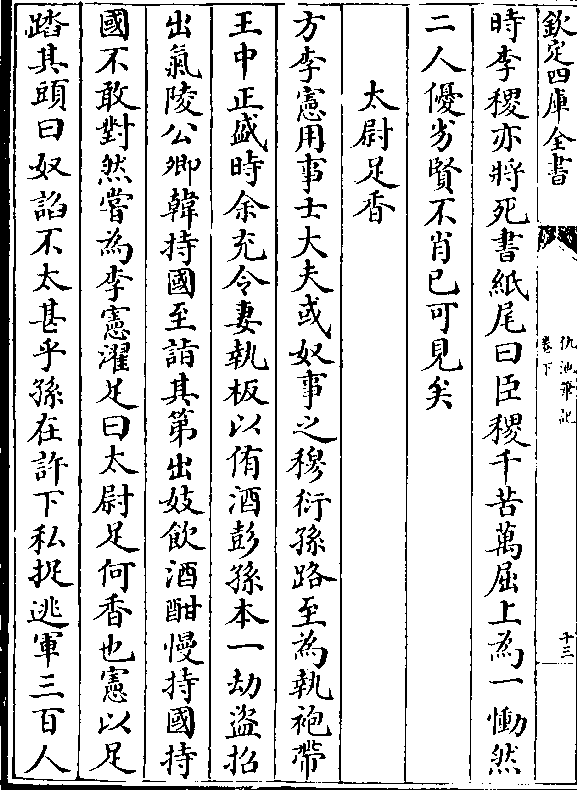 欽定四庫全書
仇池筆記
卷下
十三
時李稷亦將死書紙尾曰臣稷千苦萬屈上為一慟然
二人優劣賢不肖已可見矣
太尉足香
方李憲用事士大夫或奴事之穆衍孫路至為執袍帶
王中正盛時余充令妻執板以侑酒彭孫本一劫盜招
出氣陵公卿韓持國至詣其第出妓飲酒酣慢持國持
國不敢對然嘗為李憲濯足曰太尉足何香也憲以足
踏其頭曰奴諂不太甚乎孫在許下私捉逃軍三百人